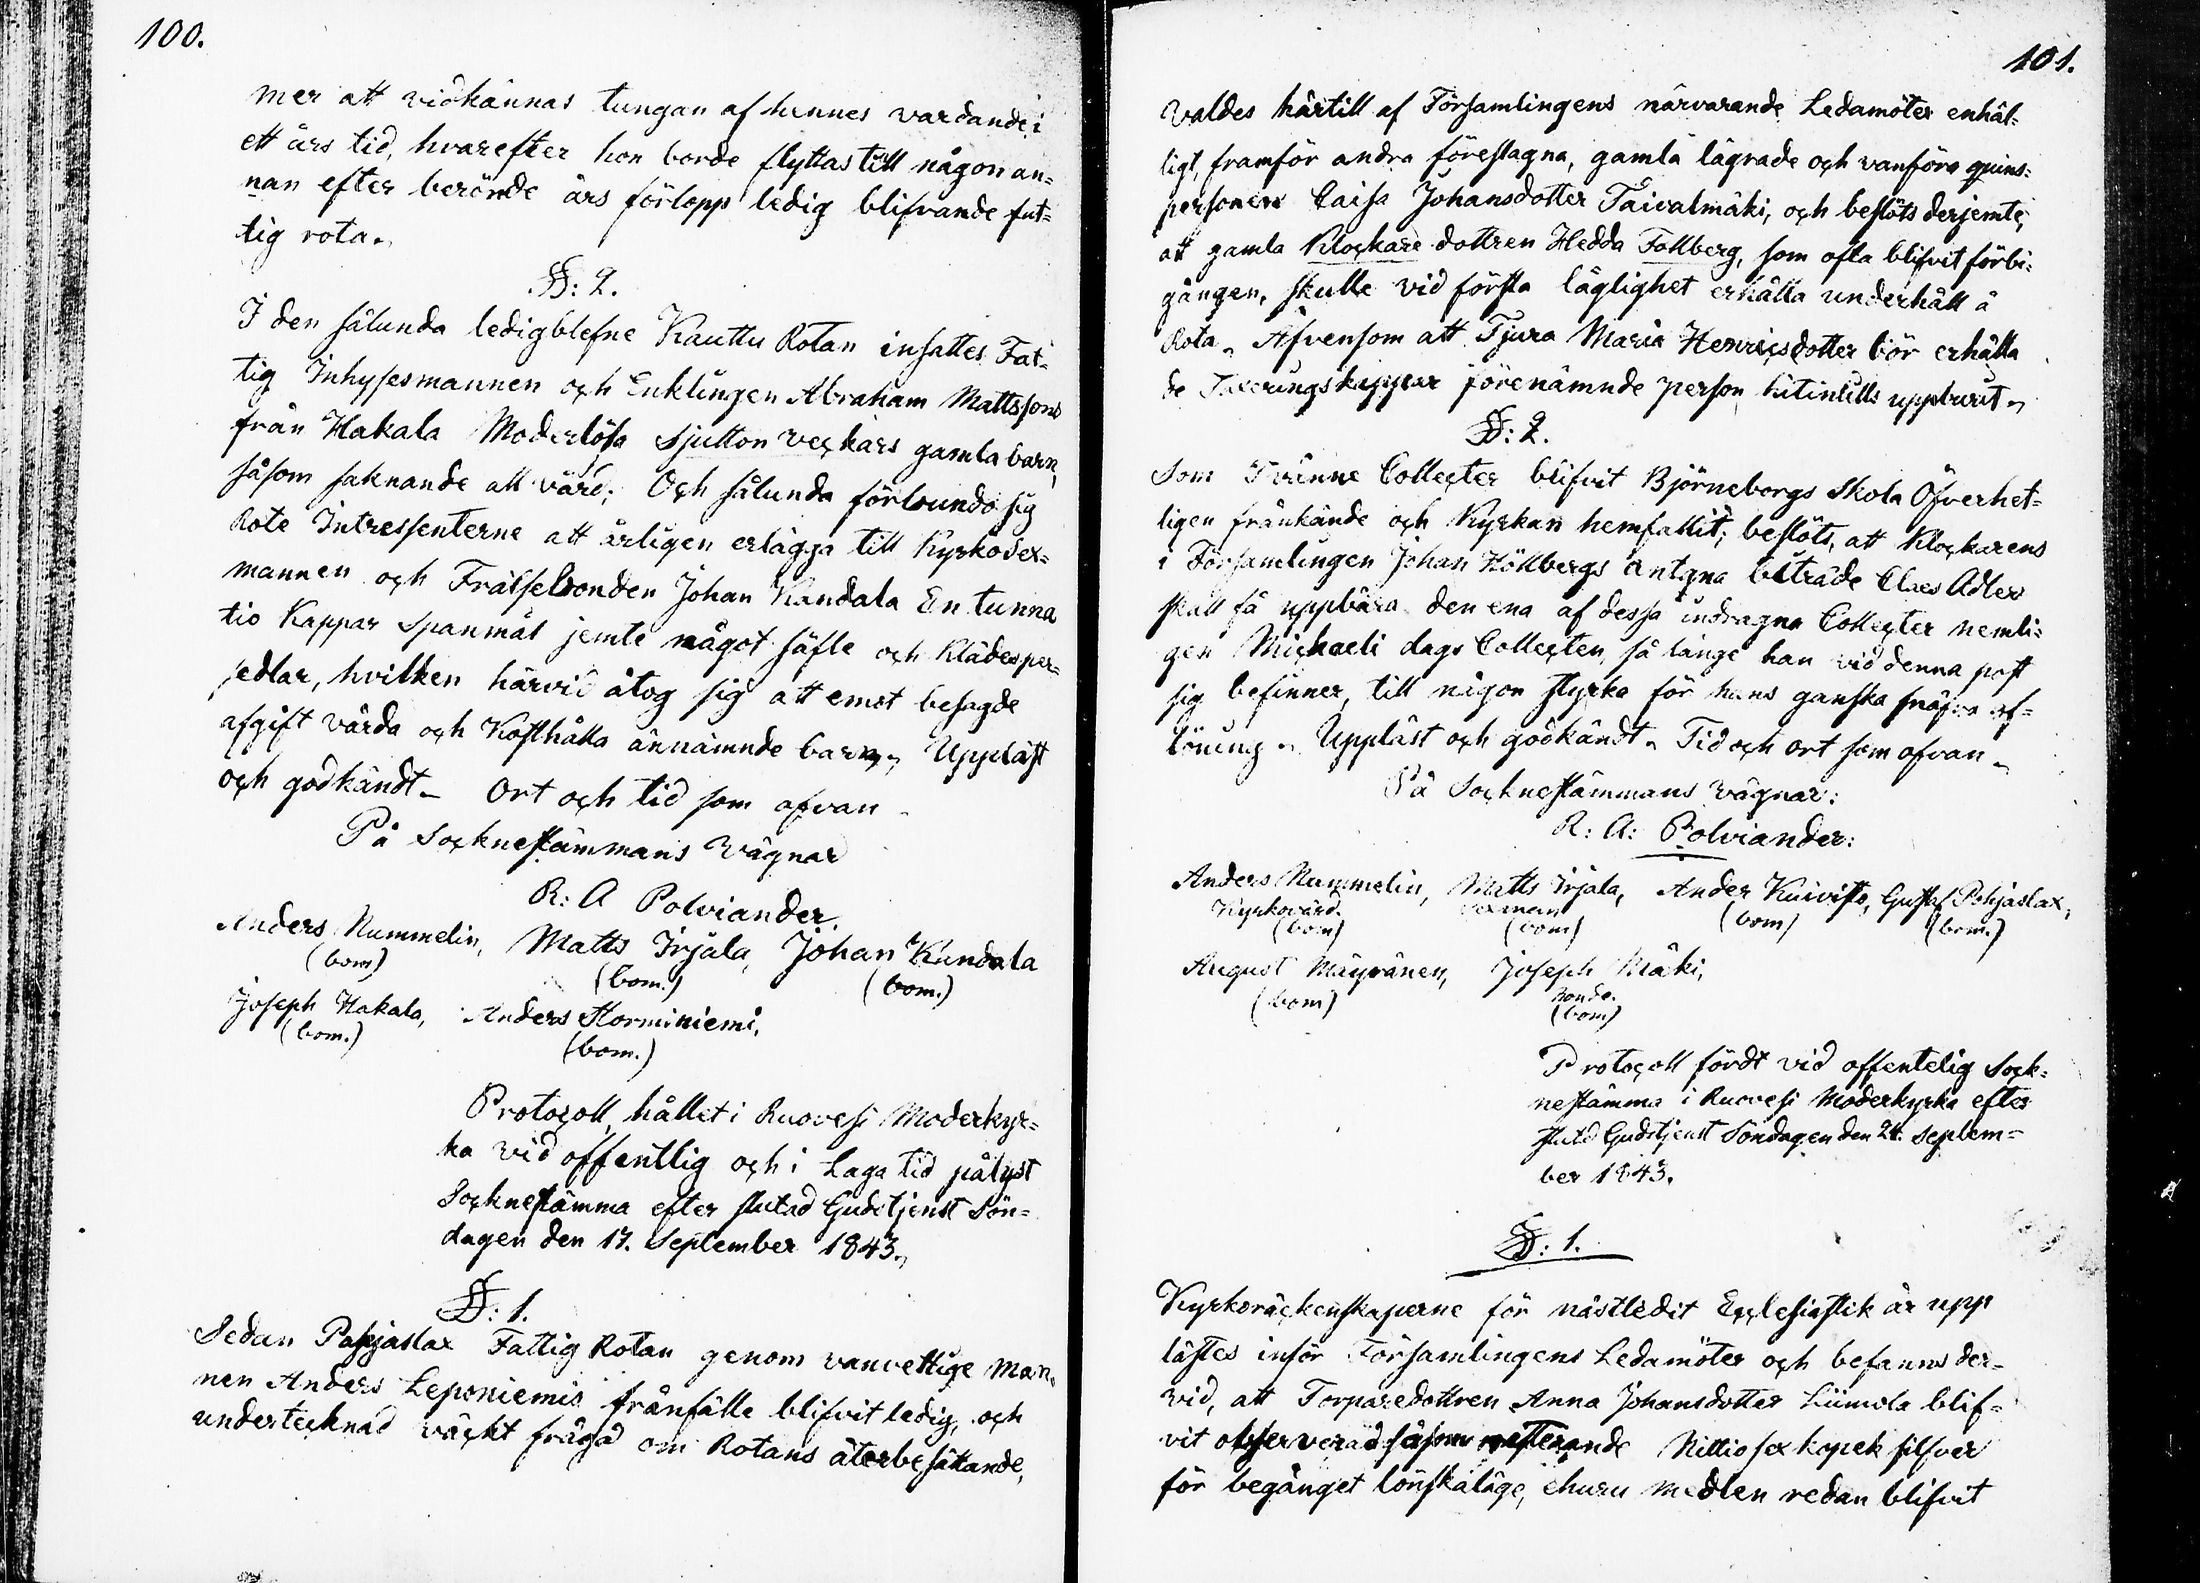 100.
mer att vidkännas tungan af hennes vårdande i
ett års tid, hvarefter hon borde flyttas till någon an=
nan efter berörde års förlopp ledig blifvande fat=
tig rota.
§: 2.
I den sålunda ledigblefne Kauttu Rotan insattes Fat=
tig Inhysesmannen och Enklingen Abraham Mattssons
från Hakala Moderlösa sjutton veckars gamla barn,
såsom saknande all vård; Och sålunda förbundo sig
Rote Intressenterne att årligen erlägga till Kyrkosex=
mannen och Frälsebonden Johan Kandala En tunna
tio Kappar Spanmål jemte något säfle och Klädesper=
sedlar, hvilken härvid åtog sig att emot besagde
afgift vårda och Kosthålla ännämnde barn. Uppläst
och godkändt. Ort och tid som ofvan
På Sockneståmmans vägnar
R: A Polviander.
Anders Nummelin, Matts Irjala, Johan Kandala
(bom) (bom.) (bom.)
Joseph Hakala, Anders Storminiemi.
(bom.) (bom.)
Protocoll, hållet i Ruovesi Moderkyr=
ka vid offentlig och i Laga tid pålyst
Socknestämma efter slutad Gudstjenst Sön=
dagen den 17. September 1843.
§: 1.
Sedan Pohjaslax Fattig Rotan genom vanvettige Man=
nen Anders Leponiemis frånfälle blifvit ledig, och
undertecknad väckt fråga om Rotans återbesättande,
101.
valdes härtill af Församlingens närvarande Ledamöter enhäl=
ligt, framför andra föreslagna, gamla lägrade och vanföra qvins=
personen Caisa Johansdotter Taivalmäki, och beslöts derjemte,
att gamla Klockare dottren Hedda Follberg, som ofta blifvit förbi=
gången, skulle vid första läglighet erhålla underhåll å
Rota. Äfvensom att Tjura Maria Henricsdotter bör erhålla
de Taxeringskappar förenämnde person hitintills uppburit.
§: 2.
Som Tvänne Collecter blifvit Björneborgs Skola Öfverhet=
ligen frånkände och Kyrkan hemfallit; beslöts, att Klockarens
i Församlingen Johan Höllbergs antagna biträde Claes Adler
skall få uppbära den ena af dessa indragna Collecter nemli=
gen Michaeli dags Collecten, så länge han vid denna post
sig befinner, till någon styrka för hans ganska snäfva af=
löning. Uppläst och godkändt. Tid och ort som ofvan.
På Socknestämmans vägnar:
R: A: Polviander:
Anders Nummelin, Matts Irjala, Ander Kuivisto, Gustaf Pohjaslax,
Kyrkovärd. sexman
(bom) (bom) (bom) (bom.)
August Mäyränen, Joseph Mäki,
bonde.
(bom) (bom)
Protocoll fördt vid offentelig Sock=
nestämma i Ruovesi Moderkyrka efter
slutd Gudstjenst Söndagen den 24. Septem=
ber 1843.
§: 1.
Kyrkoräckenskaperne för nästledit Ecclesiastik år upp
lästes inför Församlingens Ledamöter och befanns der=
vid, att Torparedottren Anna Johansdotter Liimola blif=
vit observerad såsom resterande Nittiosex kopek silfver
för begånget lönskaläge, ehuru medlen redan blifvit